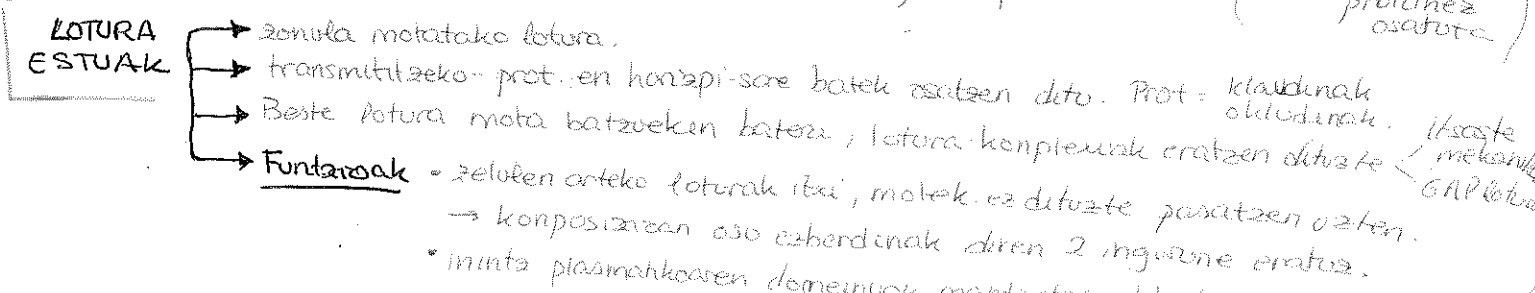 proteinez
osatuta
LOTURA
ESTUAK
zonula motatako lotura.
transmititzeko prot. en harizpi-sare batek osatzen ditu. Prot = klaudinak
okludinak.
Beste lotura mota batzuekin batera, lotura-konplexuak eratzen dituzte
itsaste
mekanika
GAP lotura
Funtzioak • zelulen arteko loturak itxi, molek. ez dituzte pasatzen uzten.
→ konposizioan oso ezberdinak diren 2 ingurune eratuz.
• mintz plasmatikoaren domeinuak